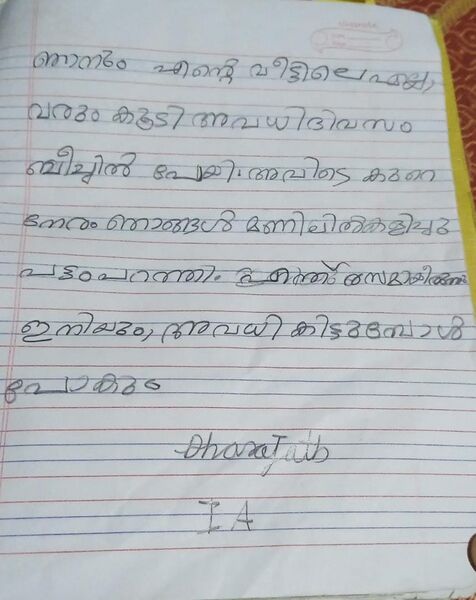 ഞാനും എന്റെ വീട്ടിലെ എല്ലാ
വരും കൂടി അവധിദിവസം
ബീച്ചിൽ പോയി. അവിടെ കുറെ
നേരം ഞാങ്ങൾ മണ്ണിലിൽകളിച്ചു
പട്ടംപറത്തി. എന്ത് രസമായിരുന്നു
ഇനിയും, അവധി കിട്ടുമ്പോൾ
പോകും
I A